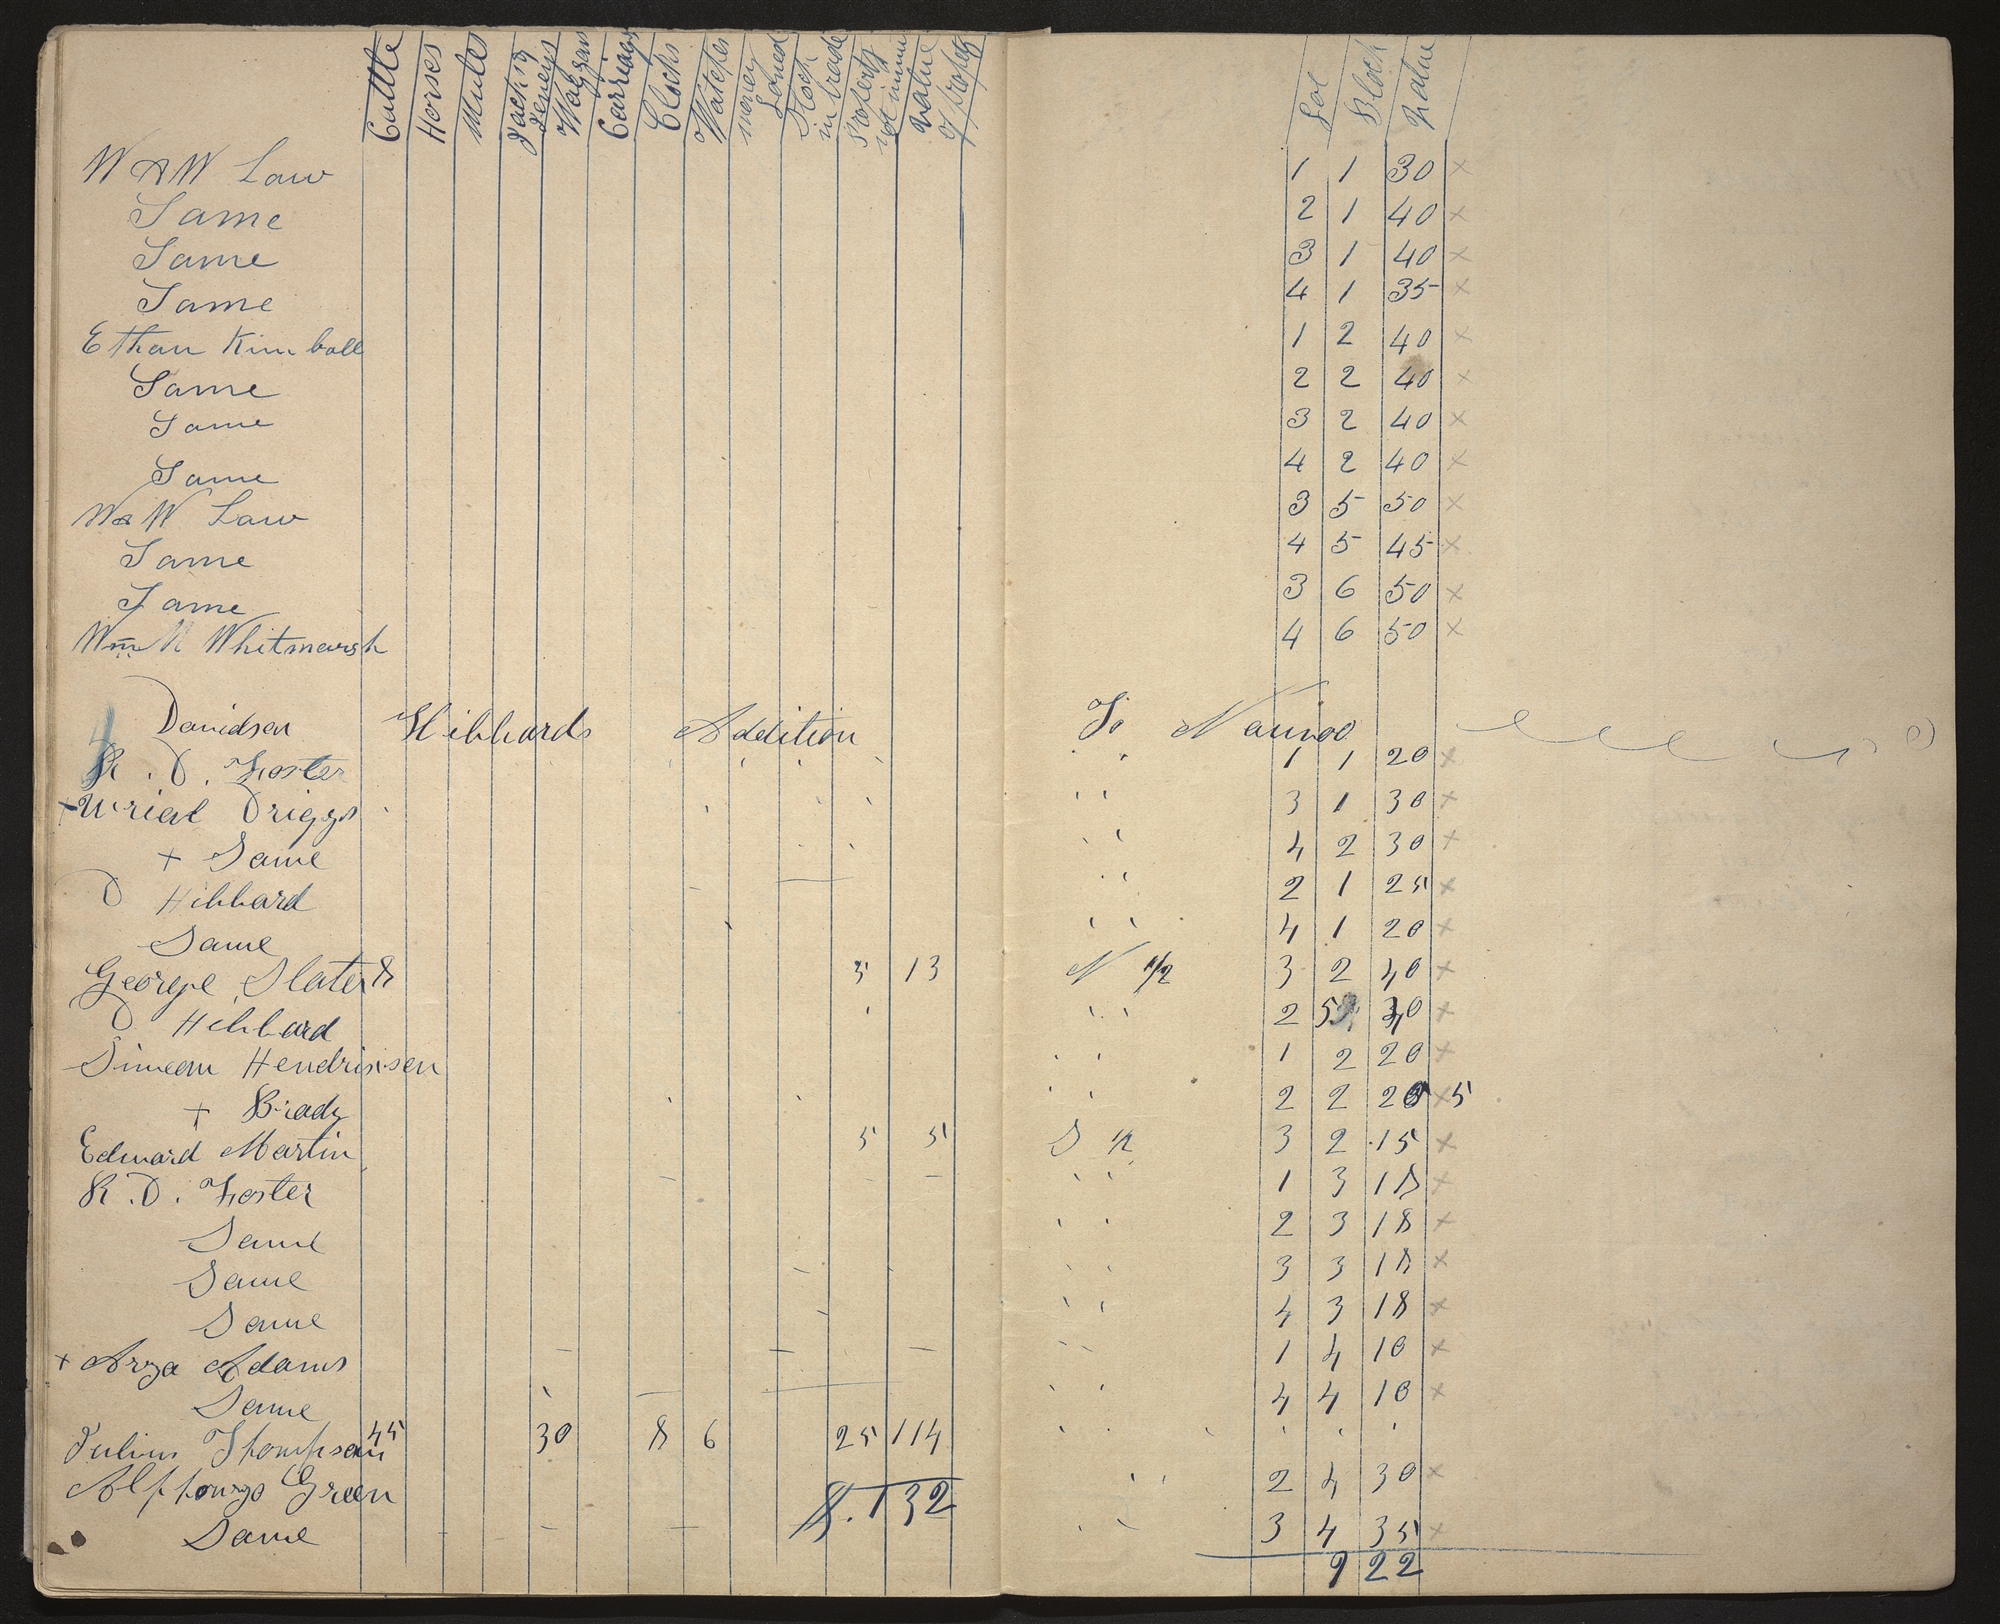 Cattle Horses Mules Jacks & Jeneys Waggons Carriages Clocks Watches money Loned Stock in trade Property not inum value of Propety Lot Block Value
W & W Law 1 1 30 x
Same 2 1 40 x
Same 3 1 40 x
Same 4 1 35 x
Ethan Kimball 1 2 40 x
Same 2 2 40 x
Same 3 2 40 x
Same 4 2 40 x
W & W Law 3 5 50 x
Same 4 5 45 x
Same 3 6 50 x
Wm N Whitmarsh 4 6 50 x
Davidson Hibbards Addition To Nauvoo
R. D. Foster " 1 1 20 x
+ Urial Driggs " " 3 1 30 x
+ Same " " 4 2 30 x
D Hibbard " " 2 1 25 x
Same " " 4 1 20 x
George Slater 5 13 N 1/2 3 2 40 x
D Hibbard " " 2 5 30 x
Simeon Hendrixsen " " 1 2 20 x
+ Brady " " 2 2 20 x 5
Edward Martin 5 5 S 1/2 3 2 15 x
R. D. Foster " " 1 3 18 x
Same " " 2 3 18 x
Same " " 3 3 18 x
Same " " 4 3 18 x
+ Arza Adams " " 1 4 10 x
Same " " 4 4 10 x
Julius Thompson 45 30 8 6 25 114 " " " " "
Alphonzo Green " " 2 4 30 x
Same " " 3 4 35 x
$.132 922